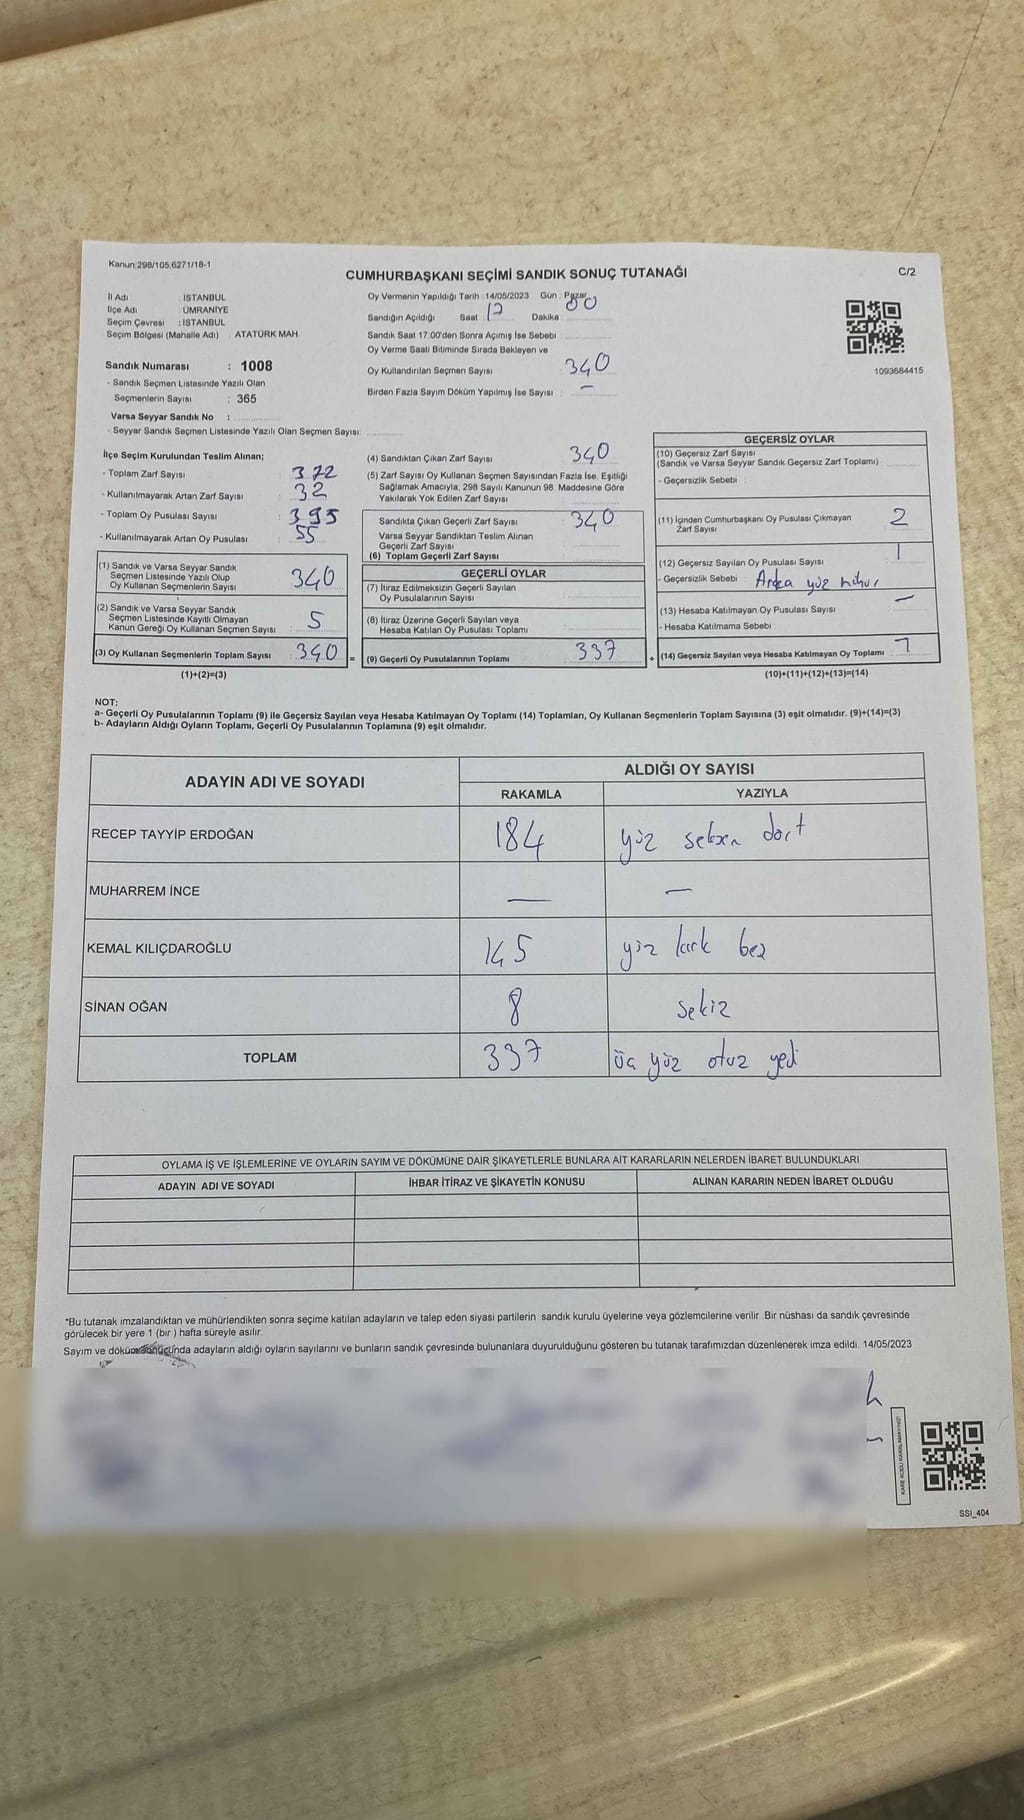 Kanun:298/105,6271/18-1
CUMHURBAŞKANI SEÇİMİ SANDIK SONUÇ TUTANAĞI
C/2
İl Adı : İSTANBUL
İlçe Adı : ÜMRANİYE
Seçim Çevresi : İSTANBUL
Seçim Bölgesi (Mahalle Adı) : ATATÜRK MAH.
Sandık Numarası : 1008
- Sandık Seçmen Listesinde Yazılı Olan
Seçmenlerin Sayısı : 365
Varsa Seyyar Sandık No :
- Seyyar Sandık Seçmen Listesinde Yazılı Olan Seçmen Sayısı:
Oy Vermenin Yapıldığı Tarih :14/05/2023 Gün : Pazar
Sandığın Açıldığı Saat 17 Dakika : 00
Sandık Saat 17:00'den Sonra Açımış İse Sebebi :
Oy Verme Saati Bitiminde Sırada Bekleyen ve
Oy Kullandırılan Seçmen Sayısı : 340
Birden Fazla Sayım Döküm Yapılmış İse Sayısı : —
1093684415
İlçe Seçim Kurulundan Teslim Alınan;
- Toplam Zarf Sayısı : 372
- Kullanılmayarak Artan Zarf Sayısı : 32
- Toplam Oy Pusulası Sayısı : 395
- Kullanılmayarak Artan Oy Pusulası : 55
(1) Sandık ve Varsa Seyyar Sandık
Seçmen Listesinde Yazılı Olup
Oy Kullanan Seçmenlerin Sayısı 340
(2) Sandık ve Varsa Seyyar Sandık
Seçmen Listesinde Kayıtlı Olmayan
Kanun Gereği Oy Kullanan Seçmen Sayısı 5
(3) Oy Kullanan Seçmenlerin Toplam Sayısı : 340
(1)+(2)=(3)
(4) Sandıktan Çıkan Zarf Sayısı : 340
(5) Zarf Sayısı Oy Kullanan Seçmen Sayısından Fazla İse, Eşitliği
Sağlamak Amacıyla, 298 Sayılı Kanunun 98. Maddesine Göre
Yakılarak Yok Edilen Zarf Sayısı :
Sandıkta Çıkan Geçerli Zarf Sayısı : 340
Varsa Seyyar Sandıktan Teslim Alınan
Geçerli Zarf Sayısı :
(6) Toplam Geçerli Zarf Sayısı :
GEÇERLİ OYLAR
(7) İtiraz Edilmeksizin Geçerli Sayılan
Oy Pusulalarının Sayısı :
(8) İtiraz Üzerine Geçerli Sayılan veya
Hesaba Katılan Oy Pusulası Toplamı :
= (9) Geçerli Oy Pusulalarının Toplamı : 337
GEÇERSİZ OYLAR
(10) Geçersiz Zarf Sayısı
(Sandık ve Varsa Seyyar Sandık Geçersiz Zarf Toplamı) :
- Geçersizlik Sebebi :
(11) İçinden Cumhurbaşkanı Oy Pusulası Çıkmayan
Zarf Sayısı : 2
(12) Geçersiz Sayılan Oy Pusulası Sayısı : 1
- Geçersizlik Sebebi : Arka yüz mühür
(13) Hesaba Katılmayan Oy Pusulası Sayısı : —
- Hesaba Katılmama Sebebi :
+ (14) Geçersiz Sayılan veya Hesaba Katılmayan Oy Toplamı :
(10)+(11)+(12)+(13)=(14)
NOT:
a- Geçerli Oy Pusulalarının Toplamı (9) ile Geçersiz Sayılan veya Hesaba Katılmayan Oy Toplamı (14) Toplamları, Oy Kullanan Seçmenlerin Toplam Sayısına (3) eşit olmalıdır. (9)+(14)=(3)
b- Adayların Aldığı Oyların Toplamı, Geçerli Oy Pusulalarının Toplamına (9) eşit olmalıdır.
ADAYIN ADI VE SOYADI
ALDIĞI OY SAYISI
RAKAMLA YAZIYLA
RECEP TAYYİP ERDOĞAN 184 yüz seksen dört
MUHARREM İNCE — —
KEMAL KILIÇDAROĞLU 145 yüz kırk beş
SİNAN OĞAN 8 sekiz
TOPLAM 337 üç yüz otuz yedi
OYLAMA İŞ VE İŞLEMLERİNE VE OYLARIN SAYIM VE DÖKÜMÜNE DAİR ŞİKAYETLERLE BUNLARA AİT KARARLARIN NELERDEN İBARET BULUNDUKLARI
ADAYIN ADI VE SOYADI İHBAR İTİRAZ VE ŞİKAYETİN KONUSU ALINAN KARARIN NEDEN İBARET OLDUĞU
*Bu tutanak imzalandıktan ve mühürlendikten sonra seçime katılan adayların ve talep eden siyasi partilerin sandık kurulu üyelerine veya gözlemcilerine verilir. Bir nüshası da sandık çevresinde
görülecek bir yere 1 (bir ) hafta süreyle asılır.
Sayım ve döküm sonucunda adayların aldığı oyların sayılarını ve bunların sandık çevresinde bulunanlara duyurulduğunu gösteren bu tutanak tarafımızdan düzenlenerek imza edildi. 14/05/2023
KARE KODU KARALAMAYINIZ!
SSI_404